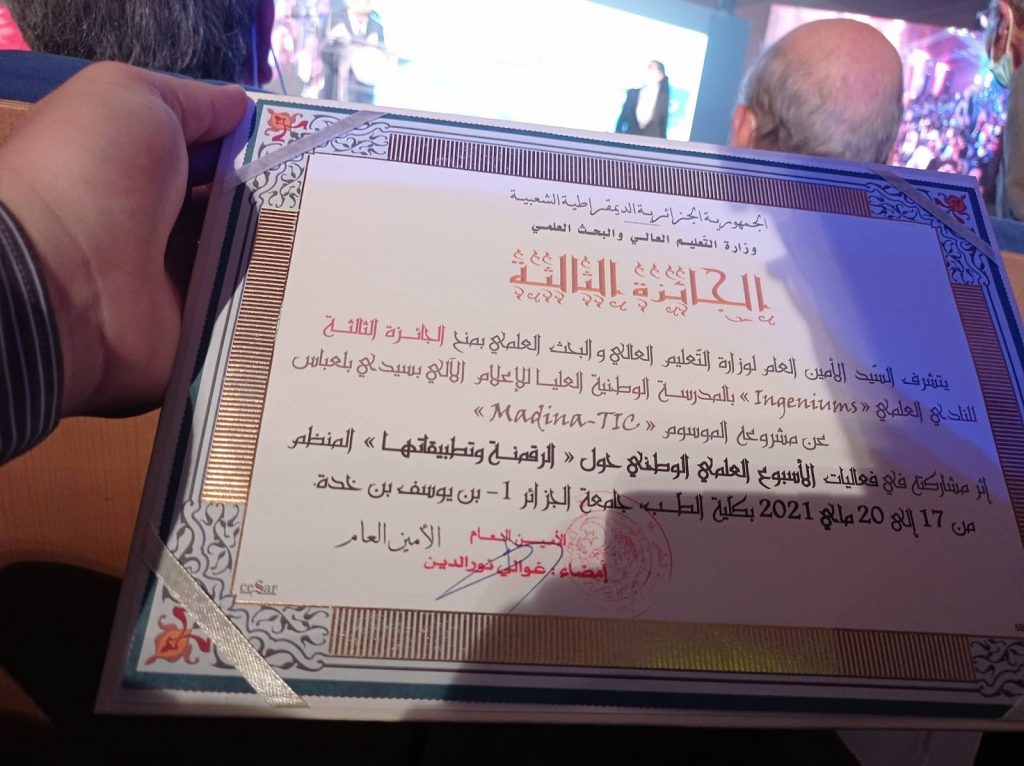 الجمهورية الجزائرية الديمقراطية الشعبية
وزارة التعليم العالي والبحث العلمي
الجائزة الثالثة
يتشرف السّيد الأمين العام لوزارة التّعليم العالي و البحث العلمي بمنح الجائزة الثالثة
للنادي العلمي « Ingeniums » بالمدرسة الوطنية العليا للإعلام الآلي بسيدي بلعباس
عن مشروعه الموسوم « Madina-TIC »
إثر مشاركته في فعاليات الأسبوع العلمي الوطني حول « الرقمنة وتطبيقاتها » المنظم
من 17 إلى 20 ماي 2021 بكلية الطب، جامعة الجزائر 1- بن يوسف بن خدة.
الأمين العام
الأمين العام
إمضاء : غوالي نورالدين
ceSsar